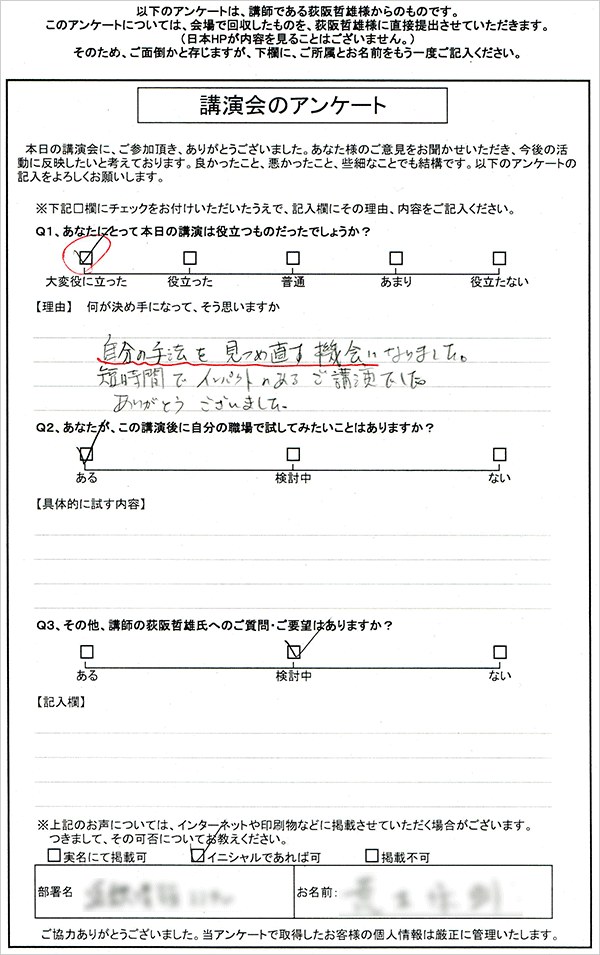 以下のアンケートは、講師である荻阪哲雄様からのものです。
このアンケートについては、会場で回収したものを、荻阪哲雄様に直接提出させていただきます。
（日本HPが内容を見ることはございません。）
そのため、ご面倒かと存じますが、下欄に、ご所属とお名前をもう一度ご記入ください。
講演会のアンケート
本日の講演会に、ご参加頂き、ありがとうございました。あなた様のご意見をお聞かせいただき、今後の活
動に反映したいと考えております。良かったこと、悪かったこと、些細なことでも結構です。以下のアンケートの
記入をよろしくお願いします。
※下記□欄にチェックをお付けいただいたうえで、記入欄にその理由、内容をご記入ください。
Q1、あなたにとって本日の講演は役立つものだったでしょうか？
大変役に立った 役立った 普通 あまり 役立たない
【理由】 何が決め手になって、そう思いますか
自分の手法を見つめ直す機会になりました。
短時間でインパクトのあるご講演でした。
ありがとうございました。
Q2、あなたが、この講演後に自分の職場で試してみたいことはありますか？
ある 検討中 ない
【具体的に試す内容】
Q3、その他、講師の荻阪哲雄氏へのご質問・ご要望はありますか？
ある 検討中 ない
【記入欄】
※上記のお声については、インターネットや印刷物などに掲載させていただく場合がございます。
つきまして、その可否についてお教えください。
実名にて掲載可 イニシャルであれば可 掲載不可
部署名 お名前：
ご協力ありがとうございました。当アンケートで取得したお客様の個人情報は厳正に管理いたします。